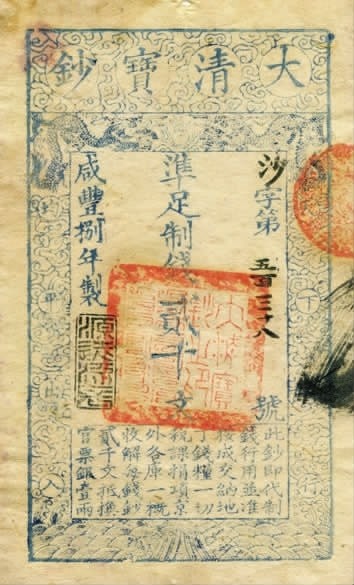 大清寶鈔
沙字第五百三十八號
準足制錢貳千文
咸豐捌年製
天下通行
均平出入
此鈔即代制
錢行用並准
按成交納地
丁錢糧一切
稅課捐項京
外各庫一概
收解每錢鈔
貳千文抵換
官票銀壹兩